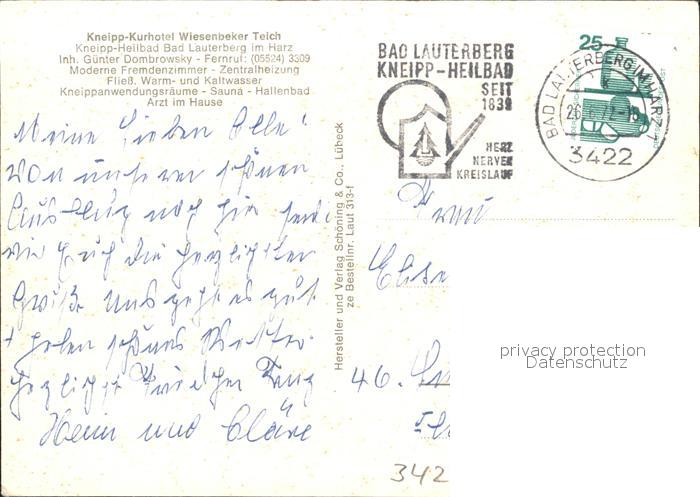 Kneipp-Kurhotel Wiesenbeker Teich
Kneipp-Heilbad Bad Lauterberg im Harz
Inh. Günter Dombrowsky - Fernruf: (05524) 3309
Moderne Fremdenzimmer - Zentralheizung
Fließ. Warm- und Kaltwasser
Kneippanwendungsräume - Sauna - Hallenbad
Arzt im Hause
Meine Lieben Alle!
Von unserem schönen
Ausflug nach hier
wir Euch die herzlichsten
Grüße. Uns geht es gut
+ haben schönes Wetter.
Herzlichst
Heini und Cläre
Hersteller und Verlag Schöning & Co., Lübeck
ze Bestellnr. Laut 313-f
BAD LAUTERBERG
KNEIPP-HEILBAD
SEIT
1839
HERZ
NERVEN
KREISLAUF
25
BAD LAUTERBERG IM HARZ 1
3422
Frau
Elise
46.
342
privacy protection
Datenschutz